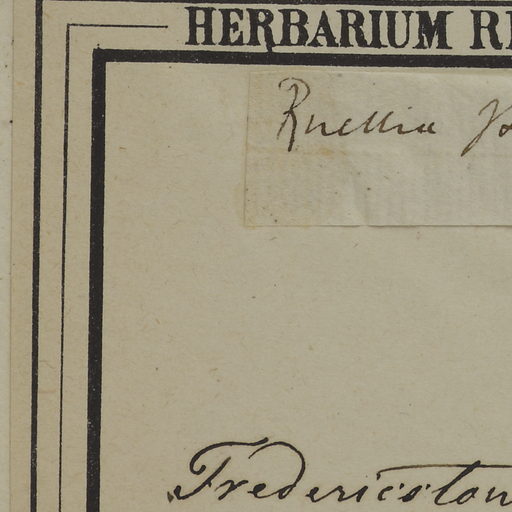 HERBARIUM
Ruellia
Fredericstow